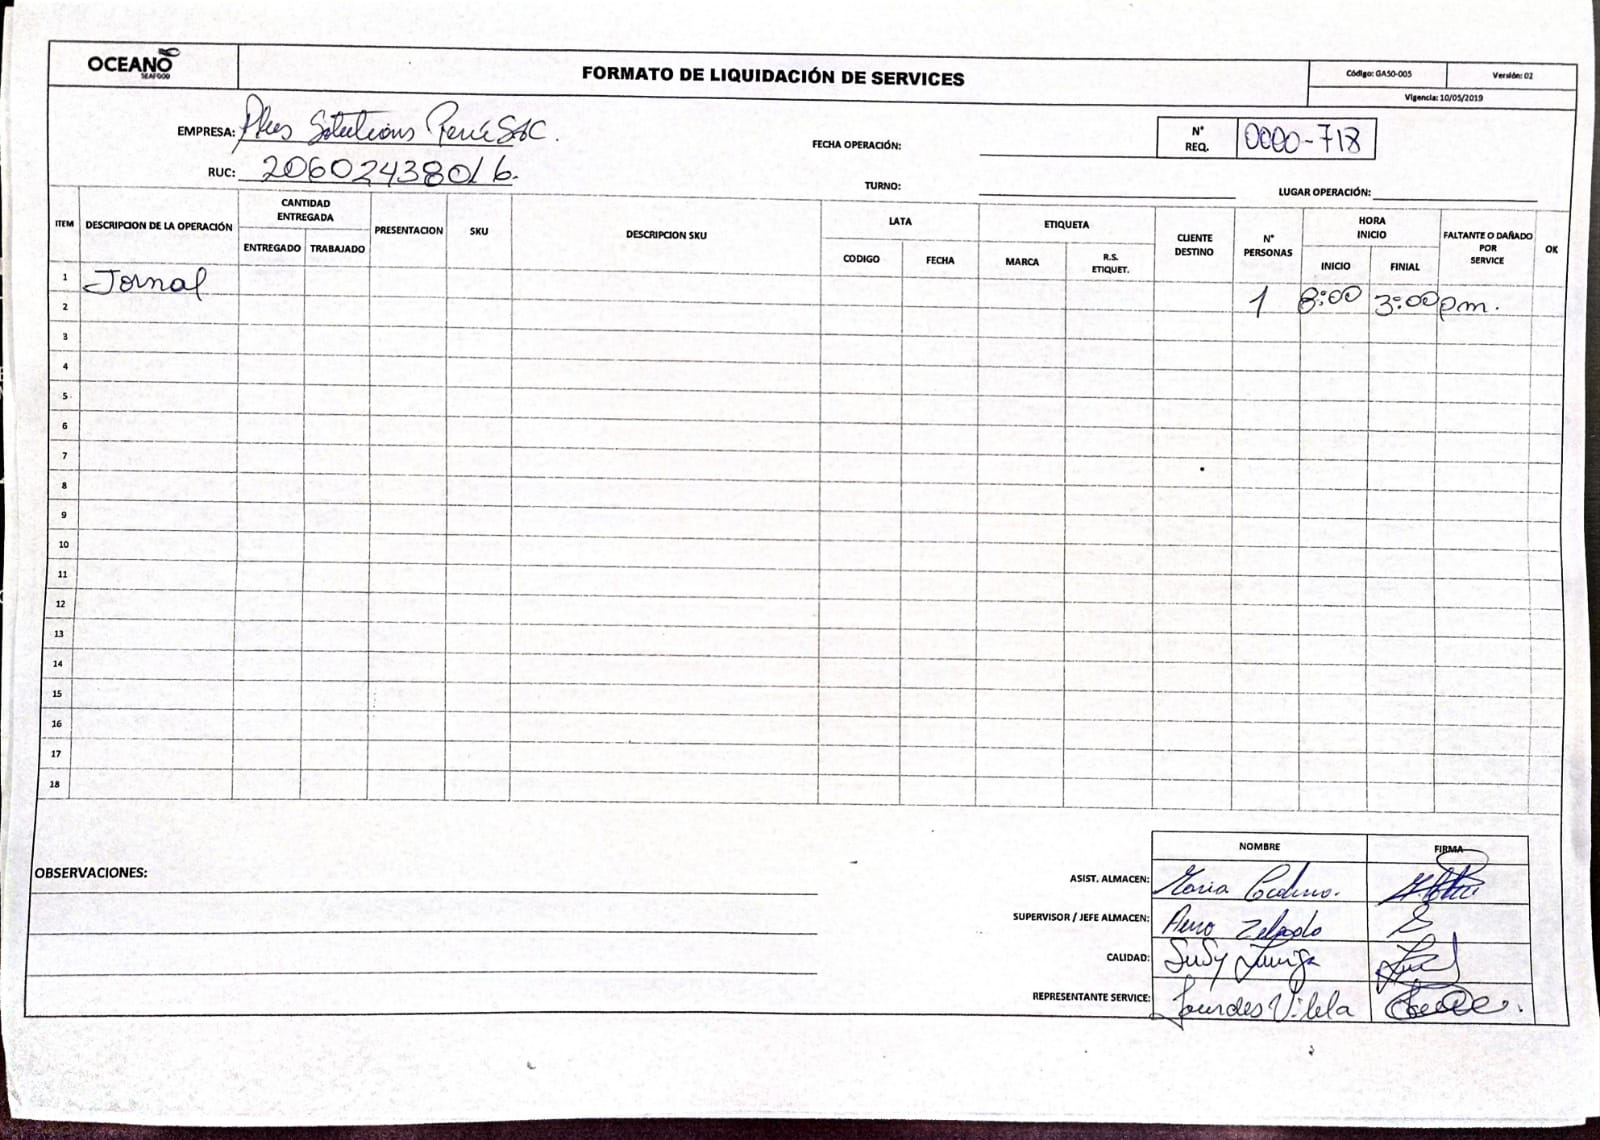 OCEANO
SEAFOOD
FORMATO DE LIQUIDACIÓN DE SERVICES
Código: GASO-005
Versión: 02
Vigencia: 10/05/2019
EMPRESA: Plus Solutions Perú SAC.
RUC: 20602438016.
FECHA OPERACIÓN:
TURNO:
N° REQ. 0000-718
LUGAR OPERACIÓN:
ITEM
DESCRIPCION DE LA OPERACIÓN
CANTIDAD ENTREGADA
ENTREGADO TRABAJADO
PRESENTACION
SKU
DESCRIPCION SKU
LATA
CODIGO FECHA
ETIQUETA
MARCA R.S. ETIQUET.
CLIENTE DESTINO
N° PERSONAS
HORA INICIO
INICIO FINIAL
FALTANTE O DAÑADO POR SERVICE
OK
1 Jornal 1 8:00 3:00 pm.
2
3
4
5
6
7
8
9
10
11
12
13
14
15
16
17
18
OBSERVACIONES:
NOMBRE FIRMA
ASIST. ALMACEN: Maria
SUPERVISOR / JEFE ALMACEN:
CALIDAD: Susy Zuñiga
REPRESENTANTE SERVICE: Lourdes Vilela